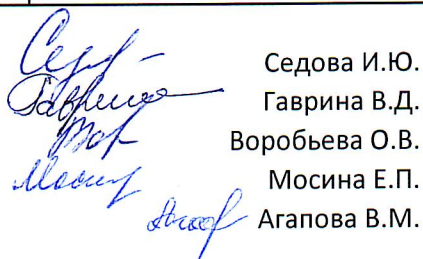 Седова И.Ю.
Гаврина В.Д.
Воробьева О.В.
Мосина Е.П.
Агапова В.М.